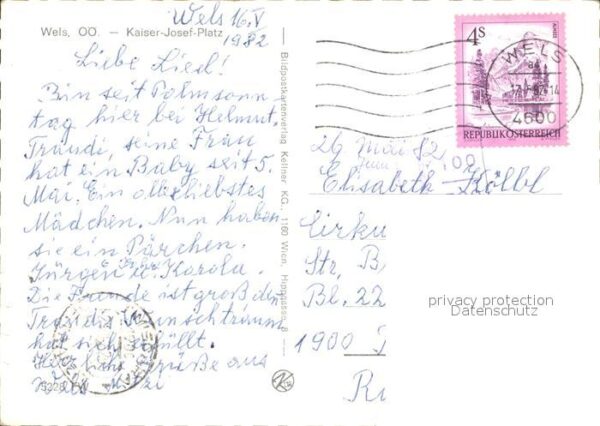 Wels 16.V
1982
Wels, OÖ. — Kaiser-Josef-Platz
Liebe Liesl!
Bin seit Palmsonn-
tag hier bei Helmut.
Traudi, seine Frau
hat ein Baby seit 5.
Mai. Ein allerliebstes
Mädchen. Nun haben
sie ein Pärchen.
Jürgen u. Karola.
Die Freude ist groß den
Traudis Wunschtraum
hat sich erfüllt.
Herzliche Grüße aus
Wels
Bildpostkartenverlag Kellner KG., 1160 Wien, 8
4S
REPUBLIK ÖSTERREICH
WELS
4600
26 Mai 82
Elisabeth Kölbl
Cirku
Str. B
Bl. 22
1900
privacy protection
Datenschutz